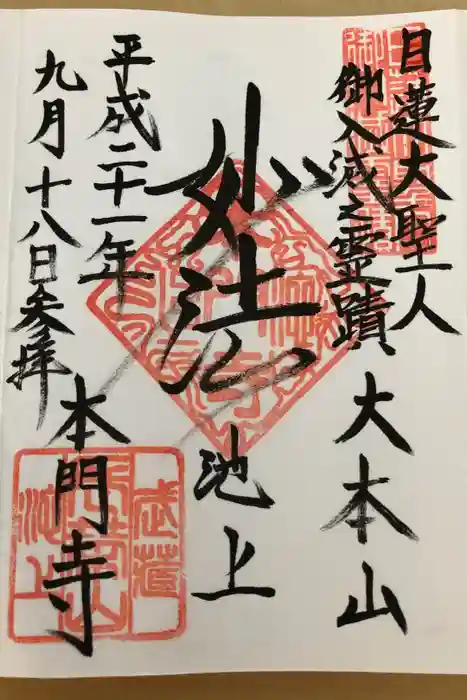 日蓮大聖人
御入滅之霊蹟
大本山
妙法
池上
本門寺
平成二十一年
九月十八日参拝